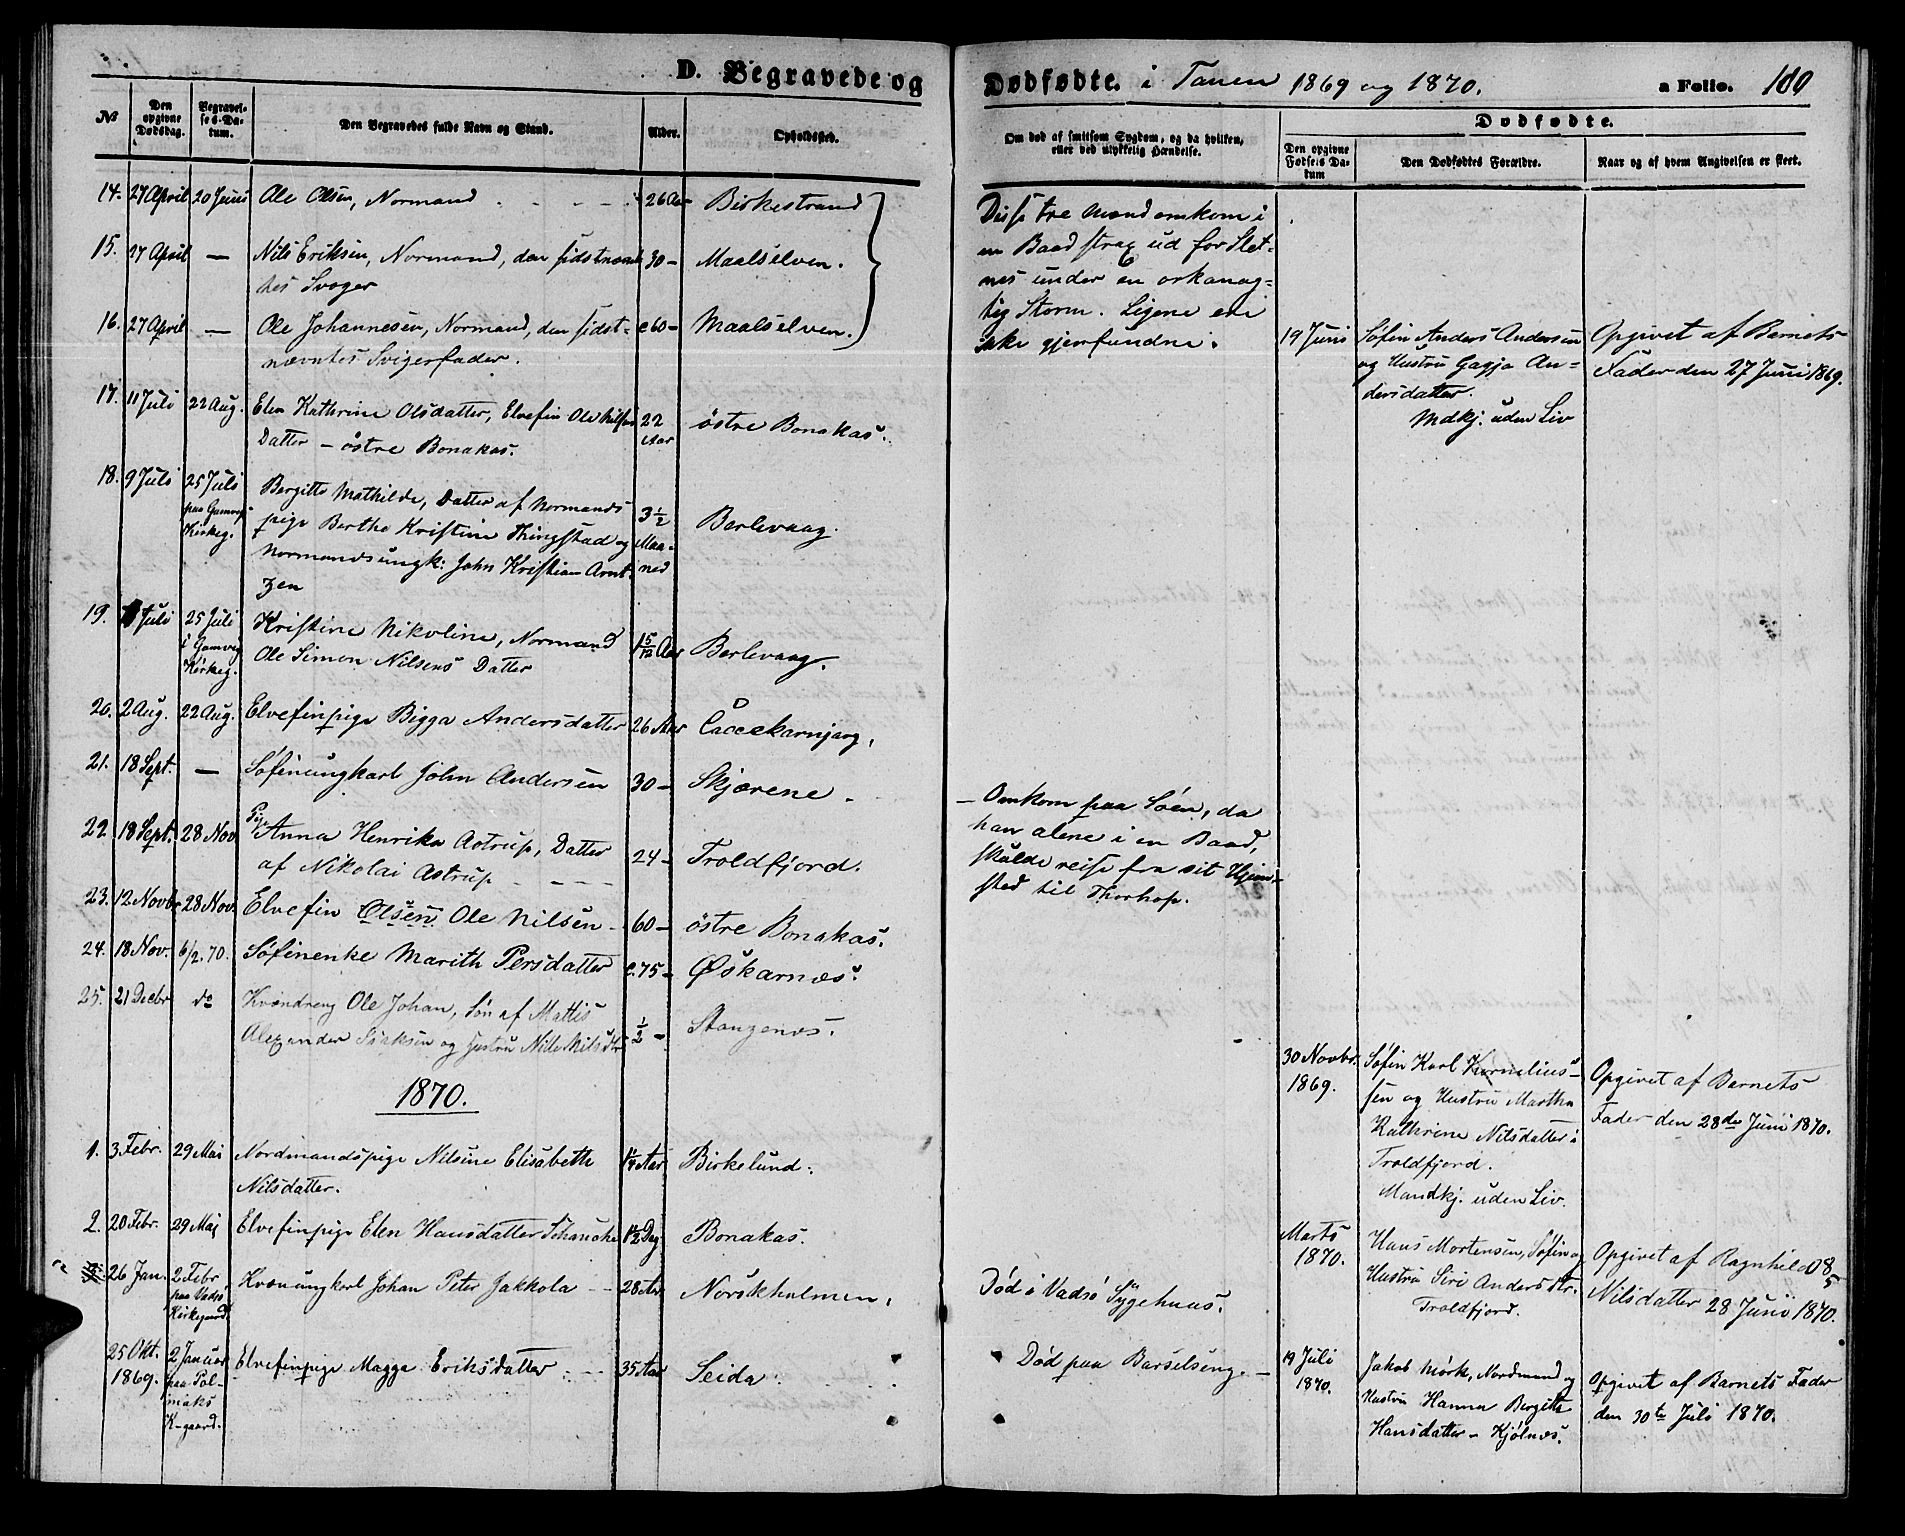 D. Begravede og Dødfødte. i Tanen 1869 og 1870. a Folio. 180
No
Den opgivne Dødsdag.
Begravelses-Datum.
Den Begravedes fulde Navn og Stand.
Alder.
Opholdssted.
Om død af smitsom Sygdom, og da hvilken,
eller ved ulykkelig Hændelse.
Dødfødte.
Den opgivne Fødsels Datum
Den Dødfødtes Forældre.
Naar og af hvem Angivelsen er skeet.
14. 27 April 20 Juni Ole Olsen, Normand 26 Aar Birkestrand
15. 27 April — Nils Eriksen, Normand, den sidstnævn-
tes Svoger 30 — Maalselven.
16. 27 April — Ole Johannesen, Normand, den sidst-
nævntes Svigerfader. c 60 — Maalselven.
Disse tre Mænd omkom i
en Baad strax ud for Slet-
nes under en orkanag-
tig Storm. Ligene ere
ikke gjenfundne.
19 Juni Søfin Anders Andersen
og Hustru Gagja An-
dersdatter.
Mdkj. uden Liv
Opgivet af Barnets
Fader den 27 Juni 1869.
17. 11 Juli 22 Aug. Elen Kathrine Olsdatter, Elvefin Ole Nilsens
Datter – østre Bonakas. 22 Aar østre Bonakas.
18. 9 Juli 25 Juli paa Gamvig Kirkeg. Bergitte Mathilde, Datter af Normands
pige Berthe Kristine Thingstad og
Normandsungk: John Kristian Arnt-
zen 3 1/2 Maa-
ned Berlevaag.
19. Juli 25 Juli i Gamvig Kirkeg. Kristine Nikoline, Normand
Ole Simon Nilsens Datter 1 5/12 Aar Berlevaag.
20. 2 Aug. 22 Aug. Elvefinpige Bigga Andersdatter 26 Aar Caccekarnjarg.
21. 18 Sept. — Søfinungkarl John Andersen 30 — Skjærene.
— Omkom paa Søen, da
han alene i en Baad,
skulde reise fra sit Hjem-
sted til Thorhop.
22. 18 Sept. 28 Nov Pige Anna Henrika Astrup, Datter
af Nikolai Astrup 24 — Troldfjord.
23. 12 Novbr 28 Nov. Elvefin Olsen Ole Nilsen 60 — østre Bonakas.
24. 18 Nov. 6/2.70. Søfinenke Marith Persdatter c. 75 — Øskarnæs.
25. 21 Decbr do Kvændreng Ole Johan, Søn af Mattis
Alexander Isaksen og Hustru 1/2 — Stangenæs.
30 Novbr.
1869.
Søfin Karl Kornelius-
sen og Hustru Martha
Kathrine Nilsdatter i
Troldfjord.
Mandkj. uden Liv.
Opgivet af Barnets
Fader den 28de Juni 1870.
1870.
1. 3 Febr. 29 Mai Nordmandspige Nilsine Elisabeth
Nilsdatter. 1/4 Aar Birkelund.
2. 20 Febr. 29 Mai Elvefinpige Elen Hansdatter Schanche 1 1/2 Dag Bonakas.
Marts
1870.
Hans Mortensen, Søfin og
Hustru Siri Andersdtr.
Troldfjord.
Opgivet af Ragnhild
Nilsdatter 28 Juni 1870.
26 Jan. 2 Febr paa Vadsø Kirkegaard. Kvænungkarl Johan Peter Jakkola 28 Aar Norskholmen.
Død i Vadsø Sygehuus.
25 Okt.
1869. 2 Januar paa Pol-
maks
K-gaard. Elvefinpige Magga Eriksdatter 35 Aar Seida.
Død paa Barselseng. —
19 Juli
1870.
Jakob Mørk, Nordmand og
Hustru Hanna Bergitte
Hansdatter – Kjølnæs.
Opgivet af Barnets Fader
den 30te Juli 1870.